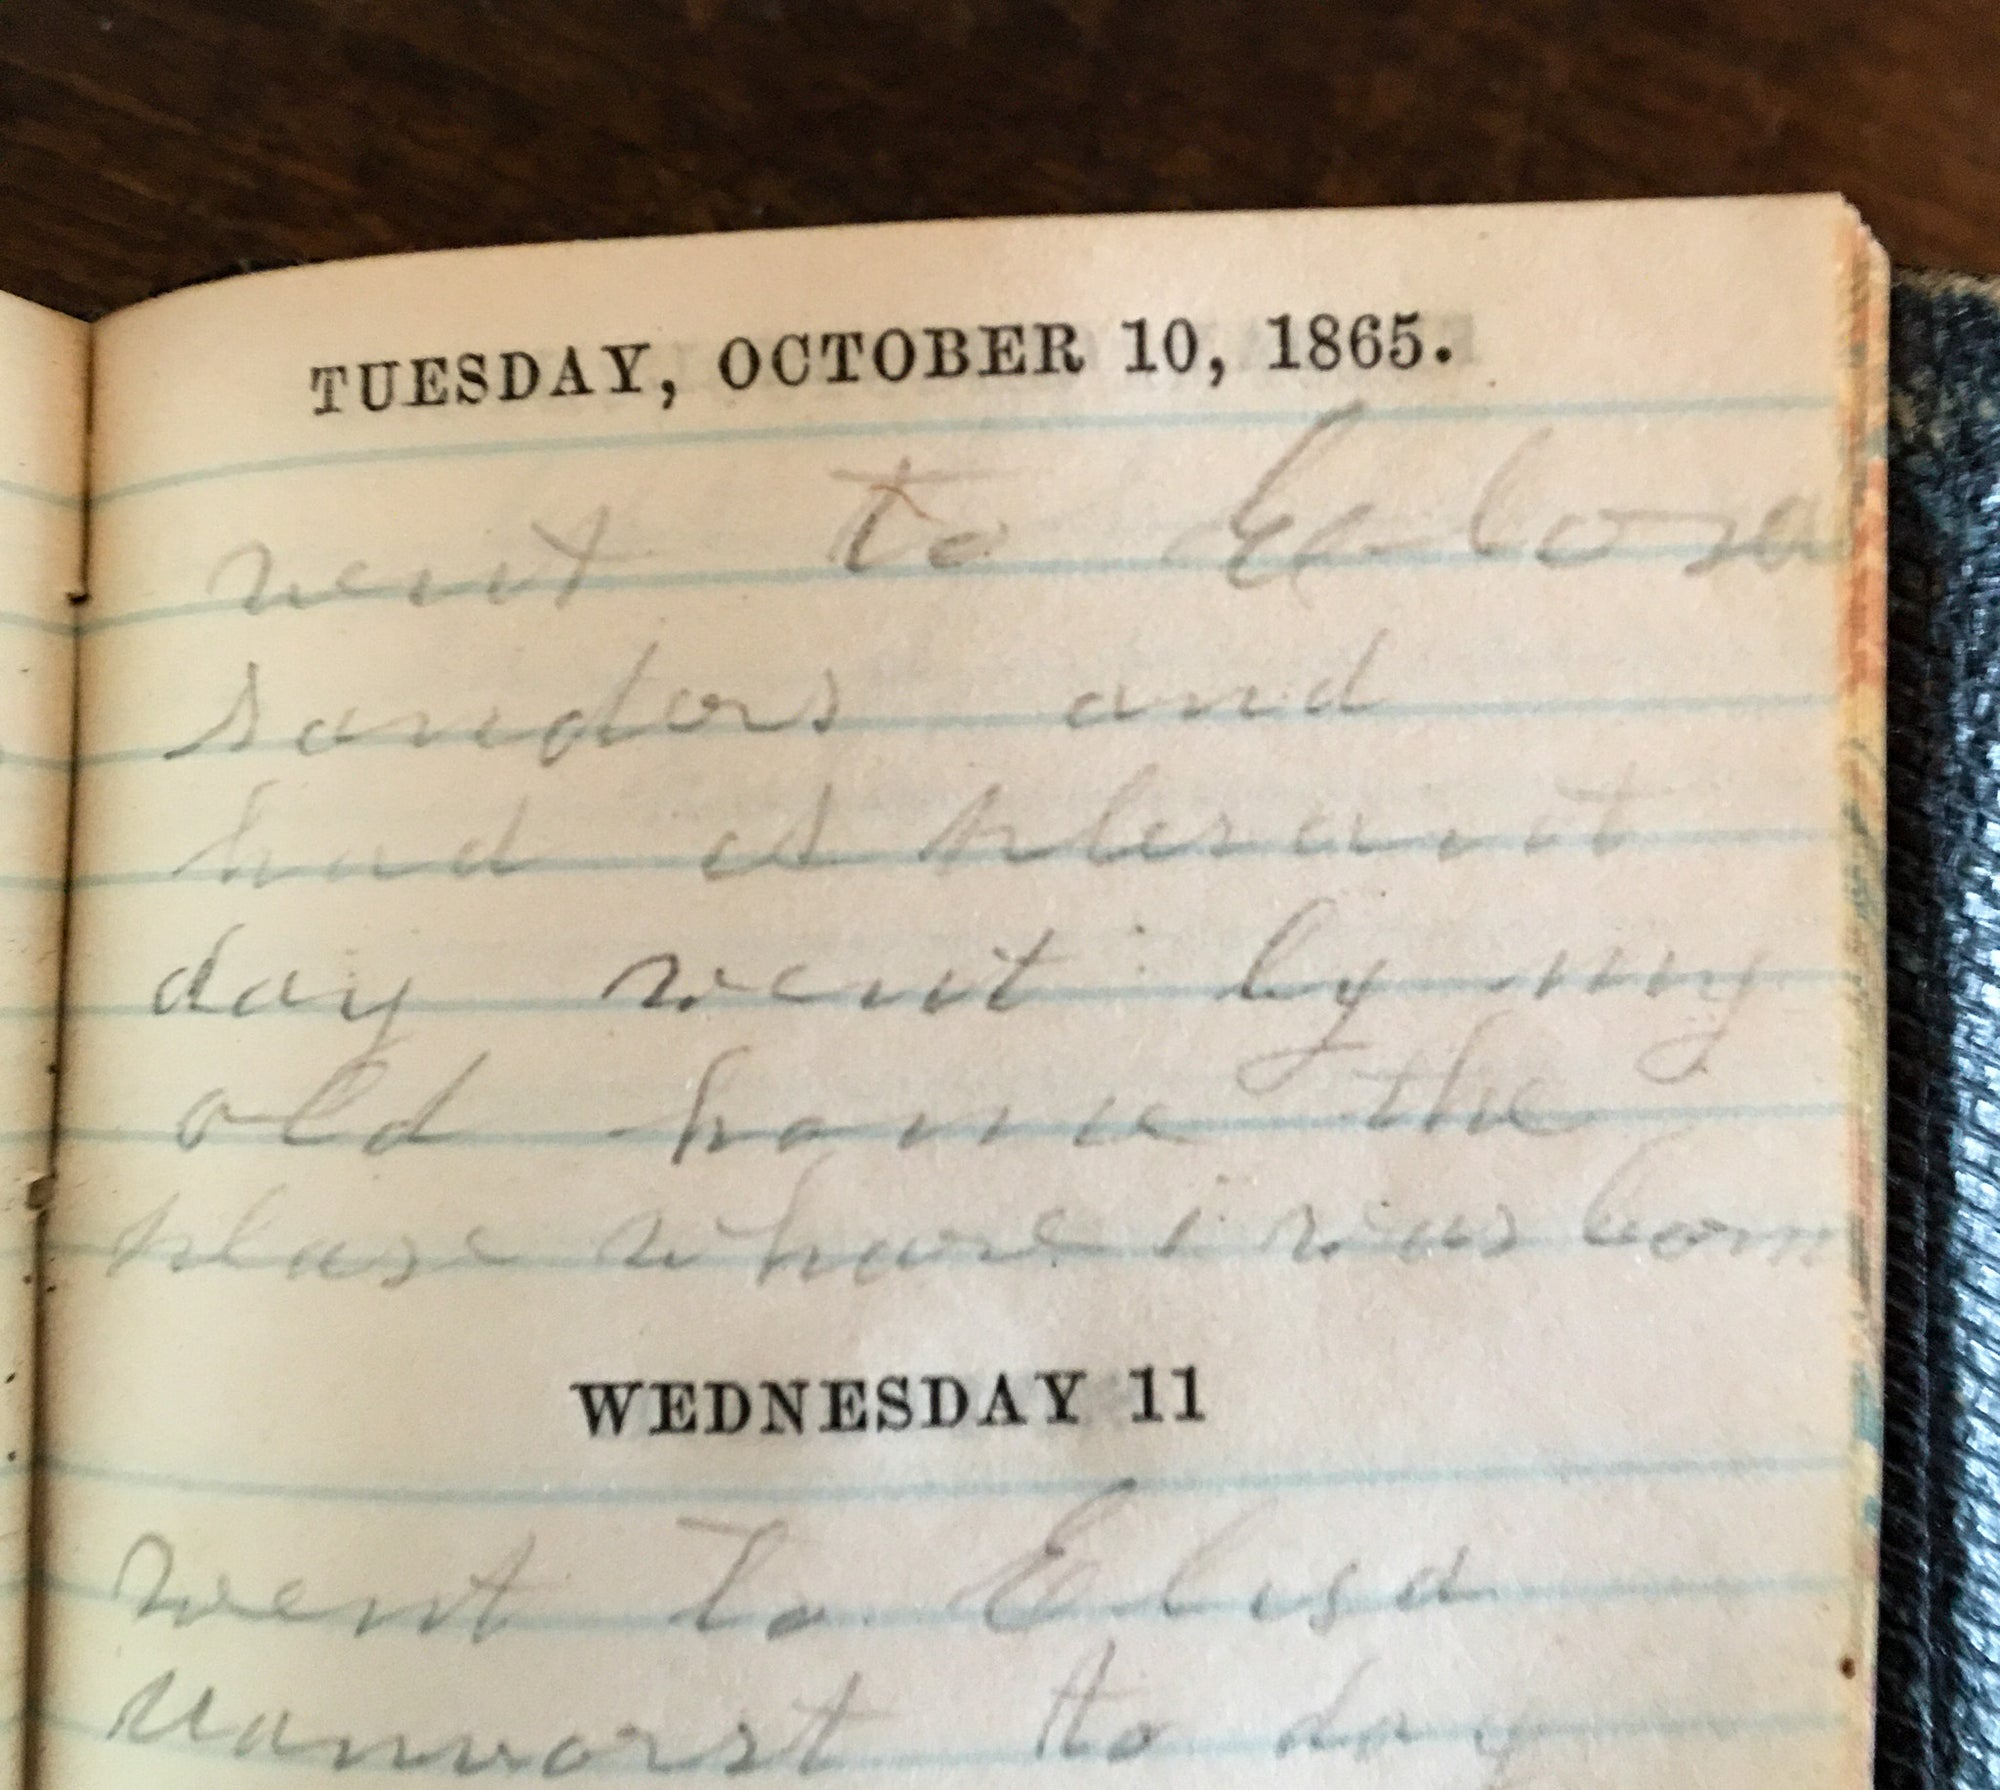 TUESDAY, OCTOBER 10, 1865.
went to
sanders and
had a plesant
day went by my
old home the
plase whare i was born
WEDNESDAY 11
went to Elisa
vanvorst to day